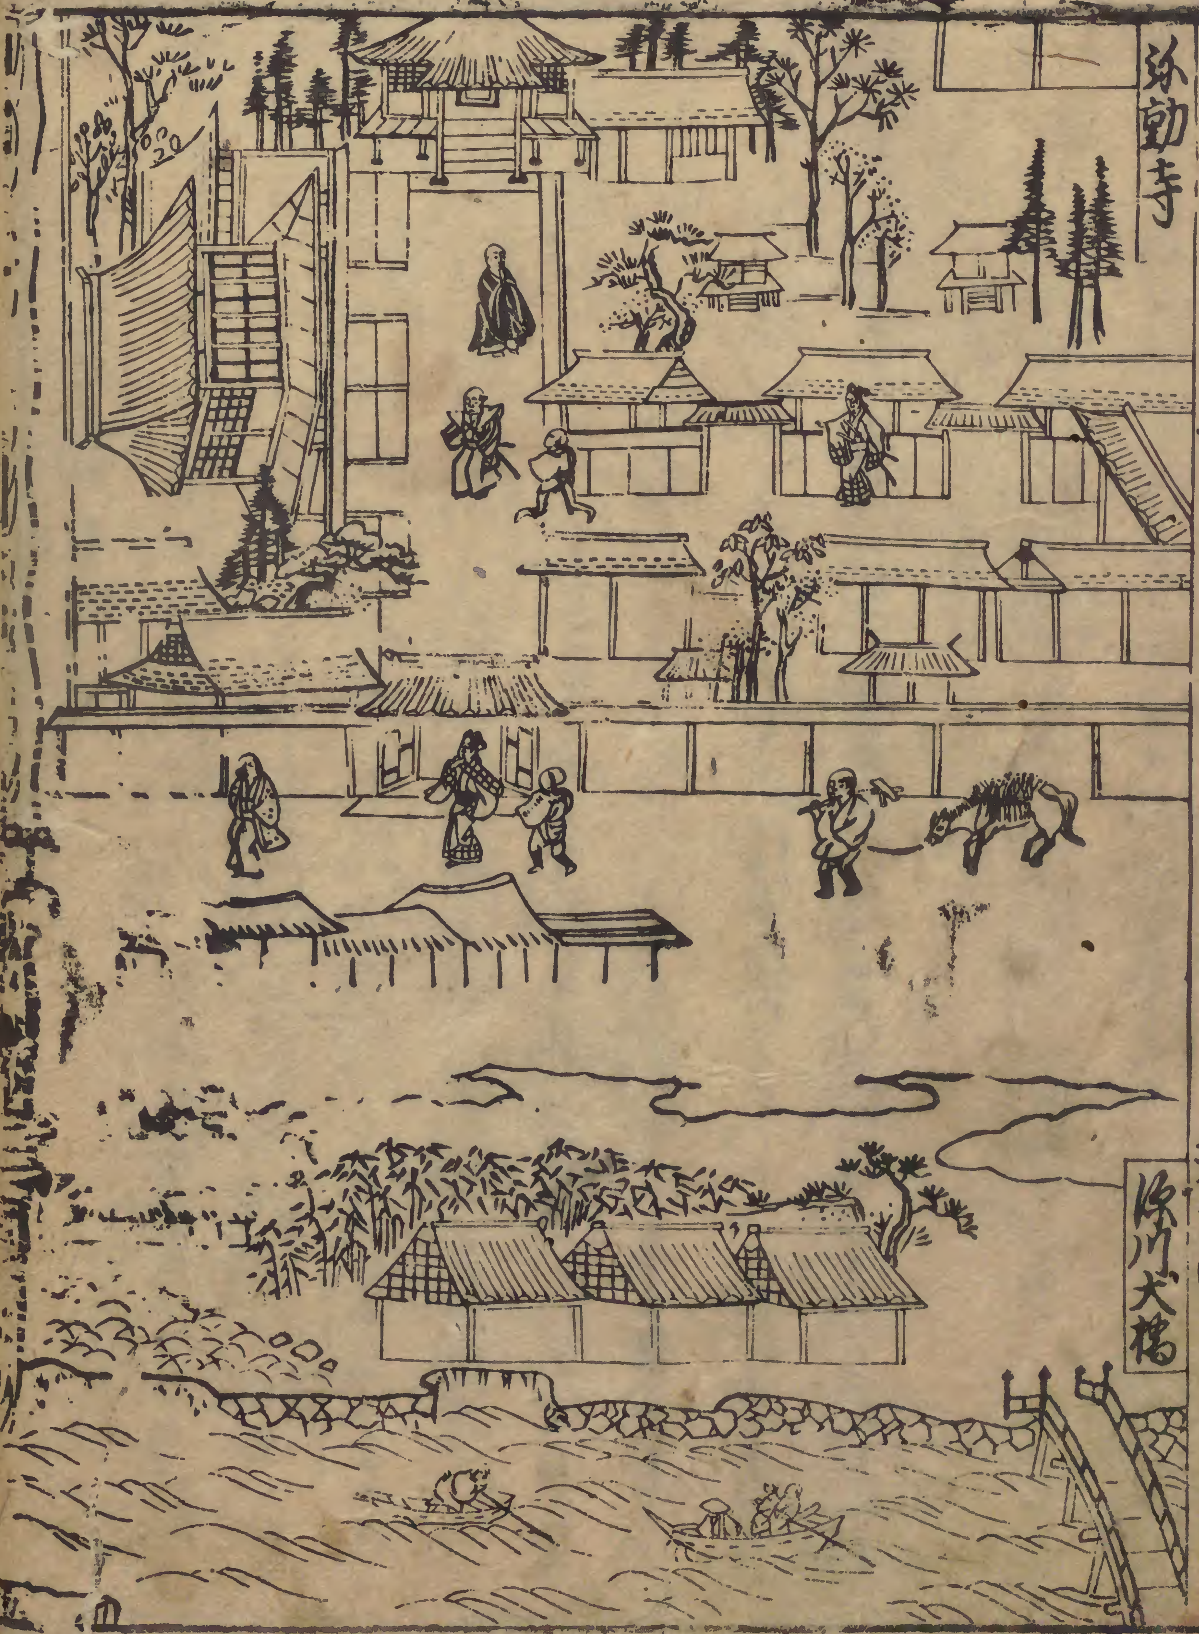 弥勒寺
深川大橋